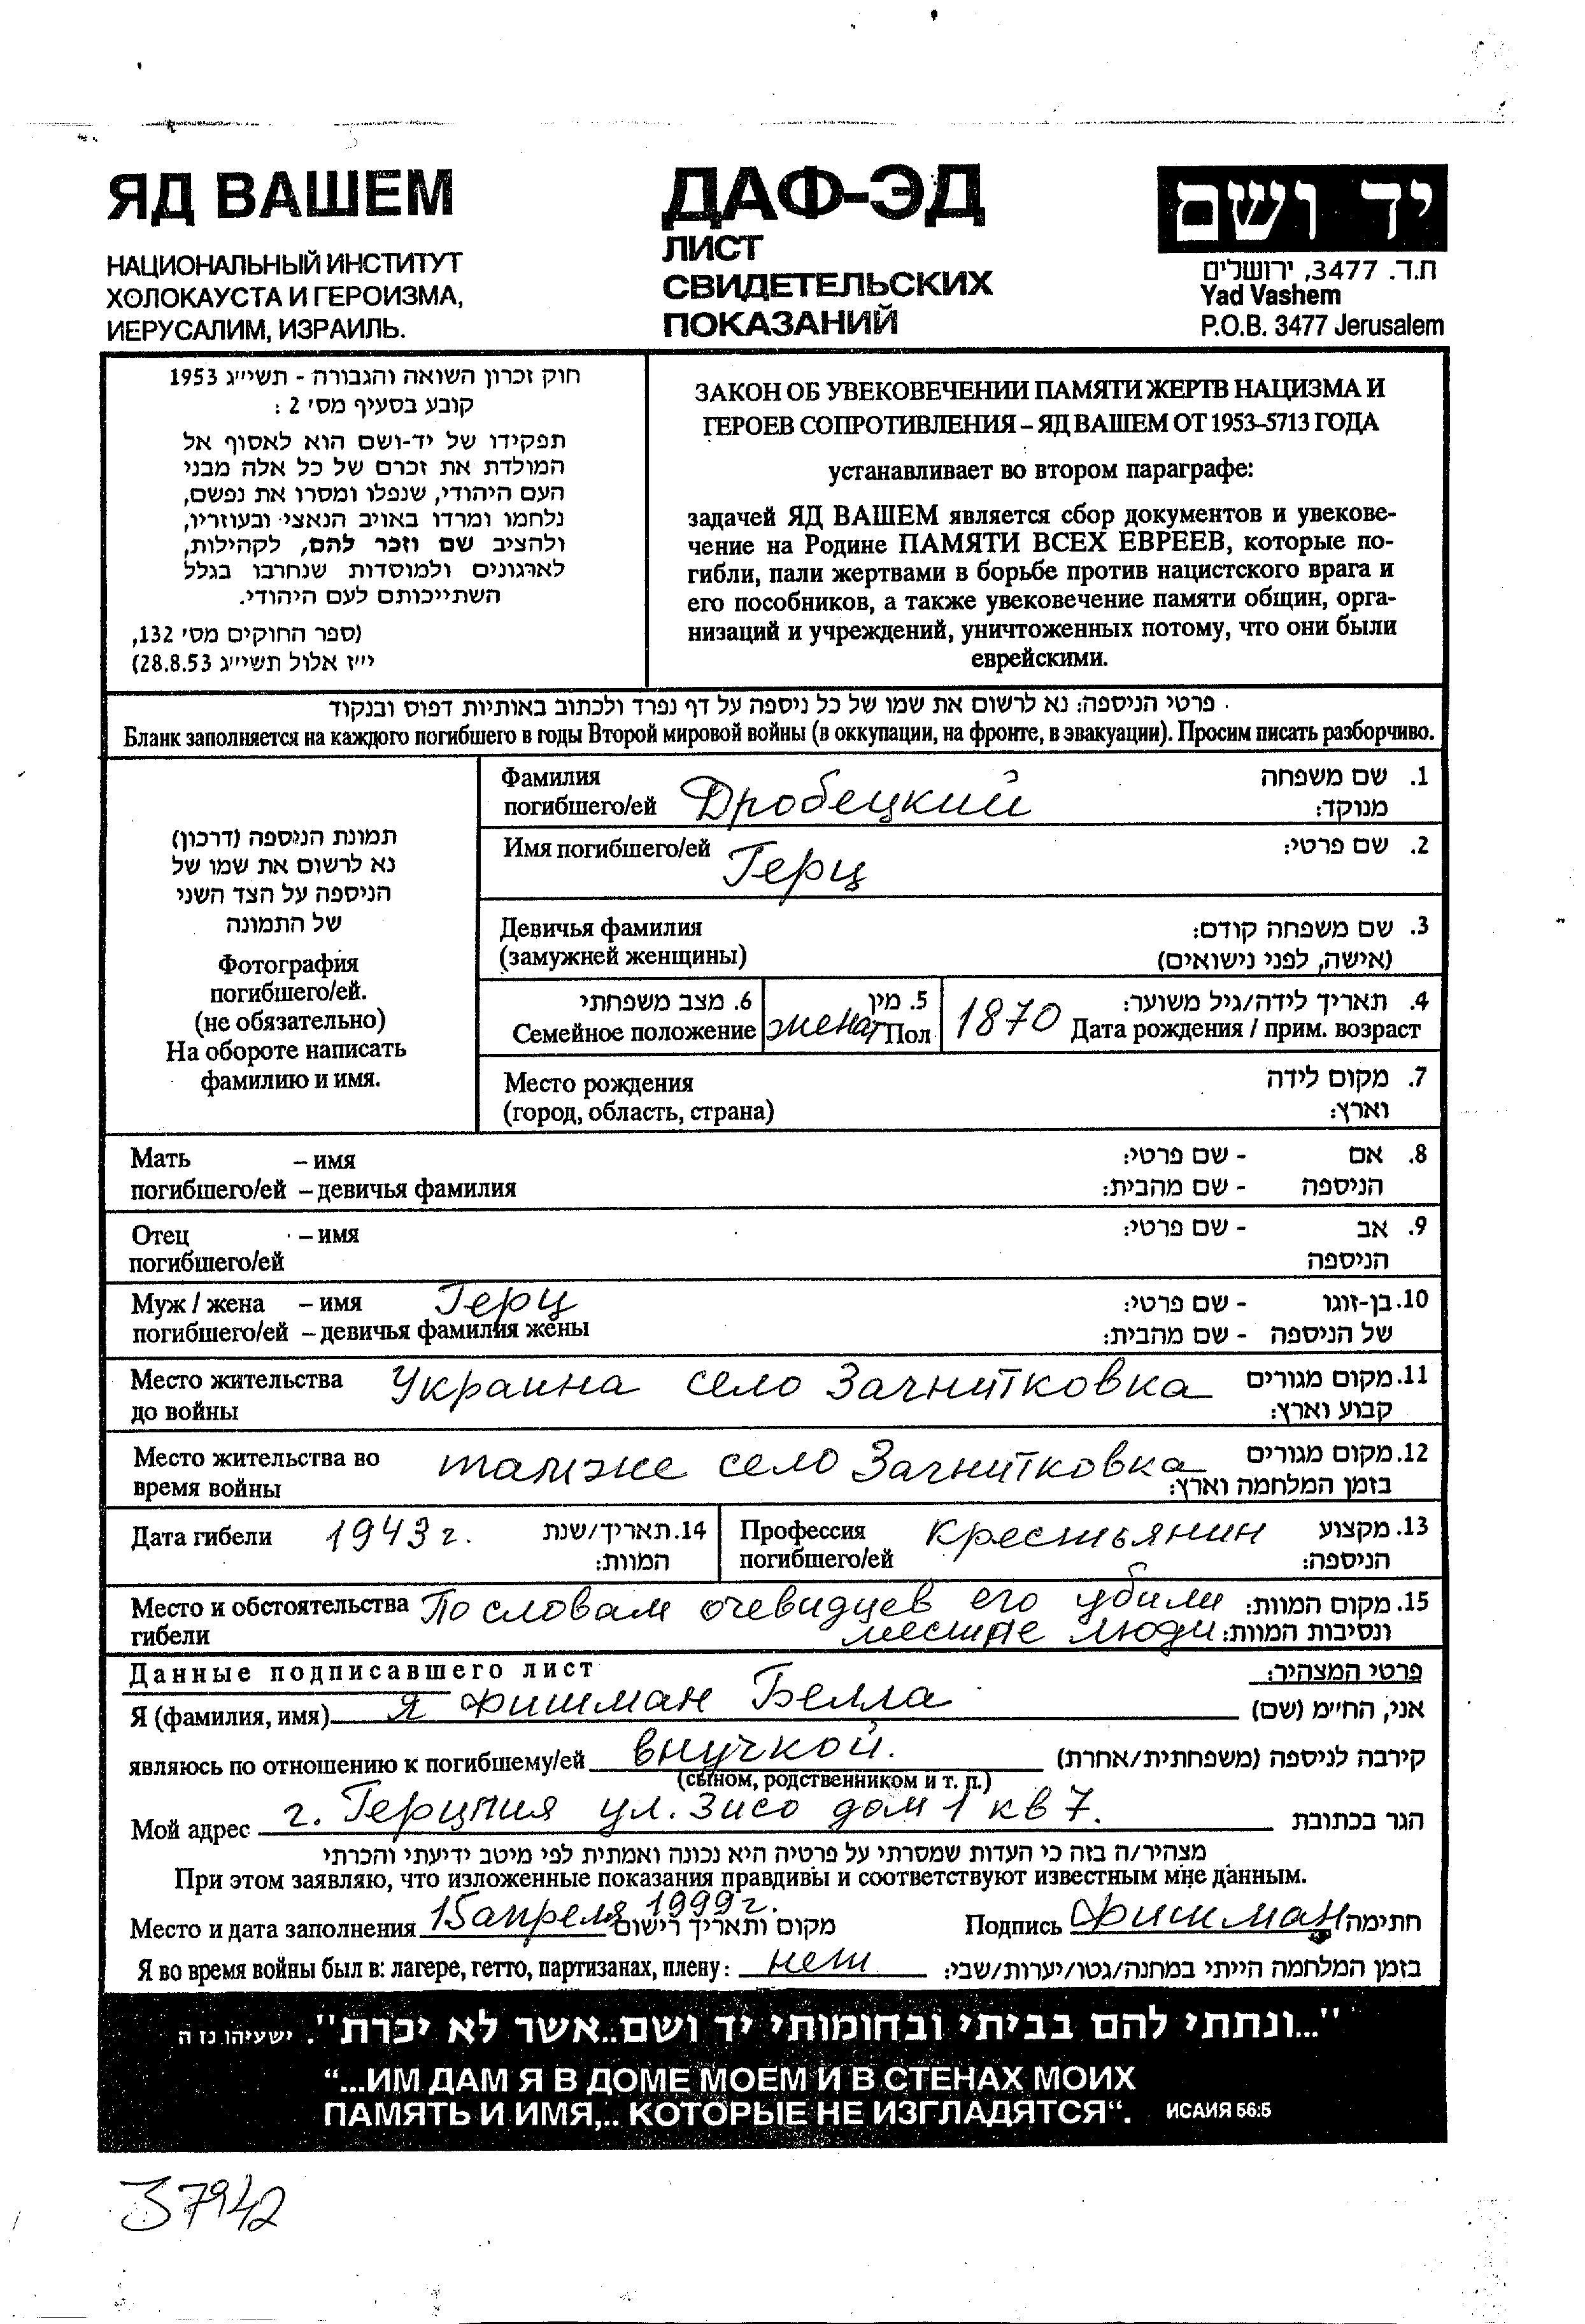 ЯД ВАШЕМ
НАЦИОНАЛЬНЫЙ ИНСТИТУТ
ХОЛОКАУСТА И ГЕРОИЗМА,
ИЕРУСАЛИМ, ИЗРАИЛЬ.
ДАФ-ЭД
ЛИСТ
СВИДЕТЕЛЬСКИХ
ПОКАЗАНИЙ
יד ושם
ת.ד. 3477, ירושלים
Yad Vashem
P.O.B. 3477 Jerusalem
חוק זכרון השואה והגבורה - תשי״ג 1953
קובע בסעיף מס׳ 2 :
תפקידו של יד-ושם הוא לאסוף אל
המולדת את זכרם של כל אלה מבני
העם היהודי, שנפלו ומסרו את נפשם,
נלחמו ומרדו באויב הנאצי ובעוזריו,
ולהציב שם וזכר להם, לקהילות,
לארגונים ולמוסדות שנחרבו בגלל
השתייכותם לעם היהודי.
(ספר החוקים מס׳ 132,
י״ז אלול תשי״ג 28.8.53)
ЗАКОН ОБ УВЕКОВЕЧЕНИИ ПАМЯТИ ЖЕРТВ НАЦИЗМА И
ГЕРОЕВ СОПРОТИВЛЕНИЯ – ЯД ВАШЕМ ОТ 1953–5713 ГОДА
устанавливает во втором параграфе:
задачей ЯД ВАШЕМ является сбор документов и увекове-
чение на Родине ПАМЯТИ ВСЕХ ЕВРЕЕВ, которые по-
гибли, пали жертвами в борьбе против нацистского врага и
его пособников, а также увековечение памяти общин, орга-
низаций и учреждений, уничтоженных потому, что они были
еврейскими.
פרטי הניספה: נא לרשום את שמו של כל ניספה על דף נפרד ולכתוב באותיות דפוס ובנקוד
Бланк заполняется на каждого погибшего в годы Второй мировой войны (в оккупации, на фронте, в эвакуации). Просим писать разборчиво.
תמונת הניספה (דרכון)
נא לרשום את שמו של
הניספה על הצד השני
של התמונה
Фотография
погибшего/ей.
(не обязательно)
На обороте написать
фамилию и имя.
Фамилия 1. שם משפחה
погибшего/ей Дробецкий מנוקד:
Имя погибшего/ей Герц 2. שם פרטי:
Девичья фамилия 3. שם משפחה קודם:
(замужней женщины) (אישה, לפני נישואים)
6. מצב משפחתי 5. מין 4. תאריך לידה/גיל משוער:
Семейное положение женат Пол 1870 Дата рождения / прим. возраст
Место рождения 7. מקום לידה
(город, область, страна) וארץ:
Мать – имя 8. אם - שם פרטי:
погибшего/ей – девичья фамилия הניספה - שם מהבית:
Отец – имя 9. אב - שם פרטי:
погибшего/ей הניספה
Муж / жена – имя Герц 10. בן-זוגו - שם פרטי:
погибшего/ей – девичья фамилия жены של הניספה - שם מהבית:
Место жительства Украина село Загнитковка 11. מקום מגורים
до войны קבוע וארץ:
Место жительства во тамже село Загнитковка 12. מקום מגורים
время войны בזמן המלחמה וארץ:
Дата гибели 1943 г. 14. תאריך/שנת
המוות:
Профессия крестьянин 13. מקצוע
погибшего/ей הניספה:
Место и обстоятельства По словам очевидцев его убили 15. מקום המוות:
гибели местные люди ונסיבות המוות:
Данные подписавшего лист פרטי המצהיר:
Я (фамилия, имя) Я Фишман Белла אני, הח״מ (שם)
являюсь по отношению к погибшему/ей внучкой. קירבה לניספה (משפחתית/אחרת)
(сыном, родственником и т. п.)
Мой адрес г. Герцлия ул. Зисо дом 1 кв 7. הגר בכתובת
מצהיר/ה בזה כי העדות שמסרתי על פרטיה היא נכונה ואמתית לפי מיטב ידיעתי והכרתי
При этом заявляю, что изложенные показания правдивы и соответствуют известным мне данным.
Место и дата заполнения 15 апреля 1999 г. מקום ותאריך רישום Подпись Фишман חתימה
Я во время войны был в: лагере, гетто, партизанах, плену: нет בזמן המלחמה הייתי במחנה/גטו/יערות/שבי:
"...ונתתי להם בביתי ובחומותי יד ושם..אשר לא יכרת". ישעיהו נו ה
“...ИМ ДАМ Я В ДОМЕ МОЕМ И В СТЕНАХ МОИХ
ПАМЯТЬ И ИМЯ,.. КОТОРЫЕ НЕ ИЗГЛАДЯТСЯ“. ИСАИЯ 56:5
37942